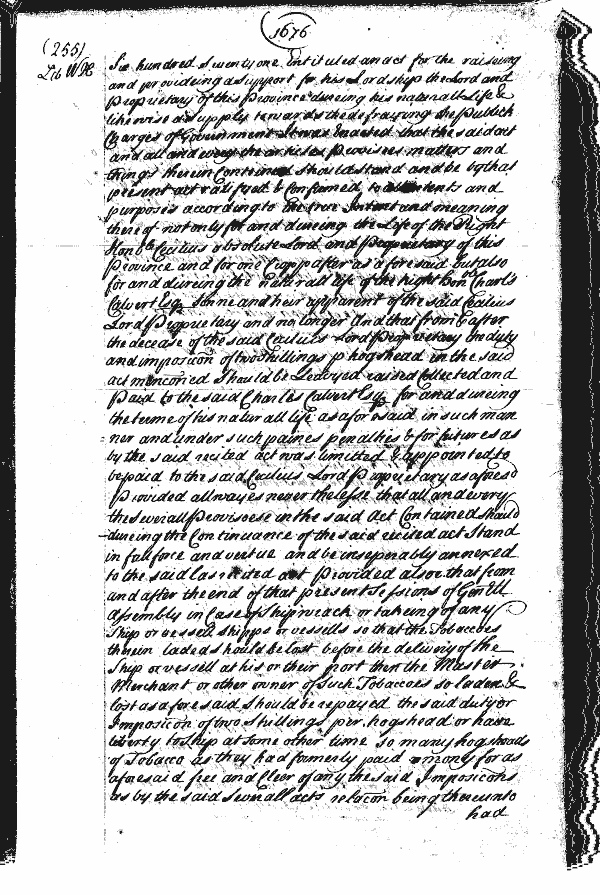 1676
(255)
Lib WH
Six hundred Seventy one, Intituled an act for the raiseing
and provideing a support for his Lordship the Lord and
Proprietary of this Province dureing his naturall Life &
likewise a supply towards the defraying the Publick
Charges of Government It was Enacted that the said act
and all and every the articles Provisoes matters and
things therein Contained should stand and be by that
present act ratifyed & Confirmed to all intents and
purposes according to the true Intent and meaning
thereof not only for and dureing the Life of the Right
Honble Cecilius absolute Lord and Proprietary of this
Province and for one Cropp after as aforesaid but also
for and dureing the naturall life of the right honble Charls
Calvert Esqr Sonne and heir apparent of the said Cecilius
Lord Proprietary and no longer And that from & after
the decease of the said Cecilius Lord Proprietary the duty
and imposicon of two shillings p hogshead in the said
act menconed should be Leavyed raised Collected and
Paid to the said Charles Calvert Esqr for and dureing
the terme of his naturall life as aforesaid in such man
ner and under such paines penalties & forfeitures as
by the said recited act was limitted & appointed to
be paid to the said Cecilius Lord Proprietary as aforesd
Provided allwayes neverthelesse that all and every
the severall Provisoes in the said Act Contained should
dureing the Continuance of the said recited act Stand
in full force and vertue and be inseperably annexed
to the said last recited act Provided also that from
and after the end of that present Sessions of Genll
Assembly in Case of Shipwreack or takeing of any
Ship or vessell shipps or vessells so that the Tobaccoes
therein laded should be lost before the delivery of the
Ship or vessell at his or their port then the Master
Merchant or other owner of such Tobaccoes so laden &
lost as aforesaid should be repayed the said duty or
Imposicon of two shillings per hogshead or have
liberty to ship at some other time so many hogsheads
of Tobacco as they had formerly paid mony for as
aforesaid free and Cleer of any the said Imposicons
as by the said severall acts relacon being thereunto
had